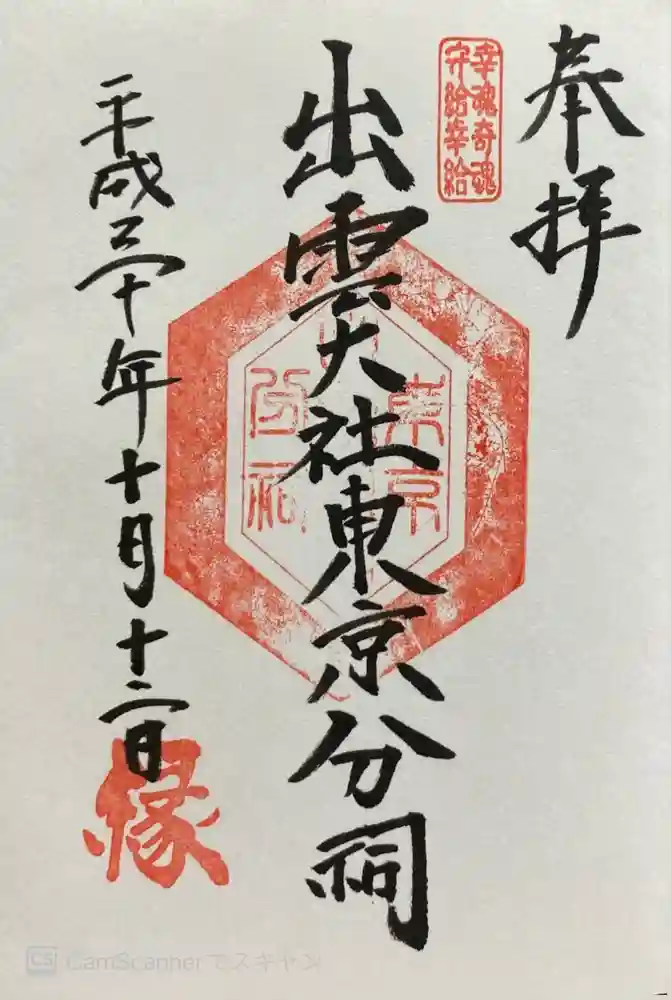 奉拝
幸魂奇魂
守給幸給
出雲大社東京分祠
東京
分祠
平成三十年十月十二日
縁
CS CamScannerでスキャン